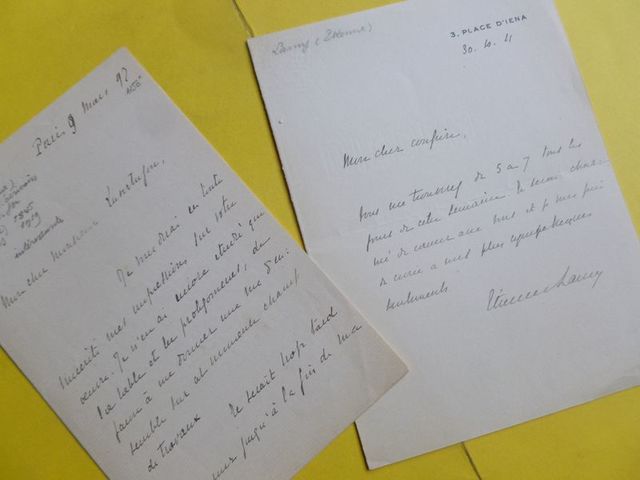 Paris 9 Mars 97
1845
1919
intéressante
Mon cher Monsieur
Je vous dirai en toute
sincérité mes impressions sur votre
œuvre. Je n'en ai encore étudié que
la table et les prolégomènes, de
façon à me donner une vue d'en-
semble sur cet immense champ
de travaux Ce serait trop tard
jusqu'à la fin de ma
Lamy (Etienne)
3, PLACE D'IÉNA
30.
Mon cher confrère,
Vous me trouverez de 5 à 7 tous les
jours de cette semaine. Je serai char-
mé de causer avec vous et je vous prie
de croire à mes plus sympathiques
sentiments
Etienne Lamy